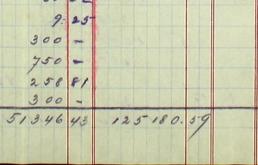 9 25
300 –
750 –
258 81
300 –
51346 43 125180.59